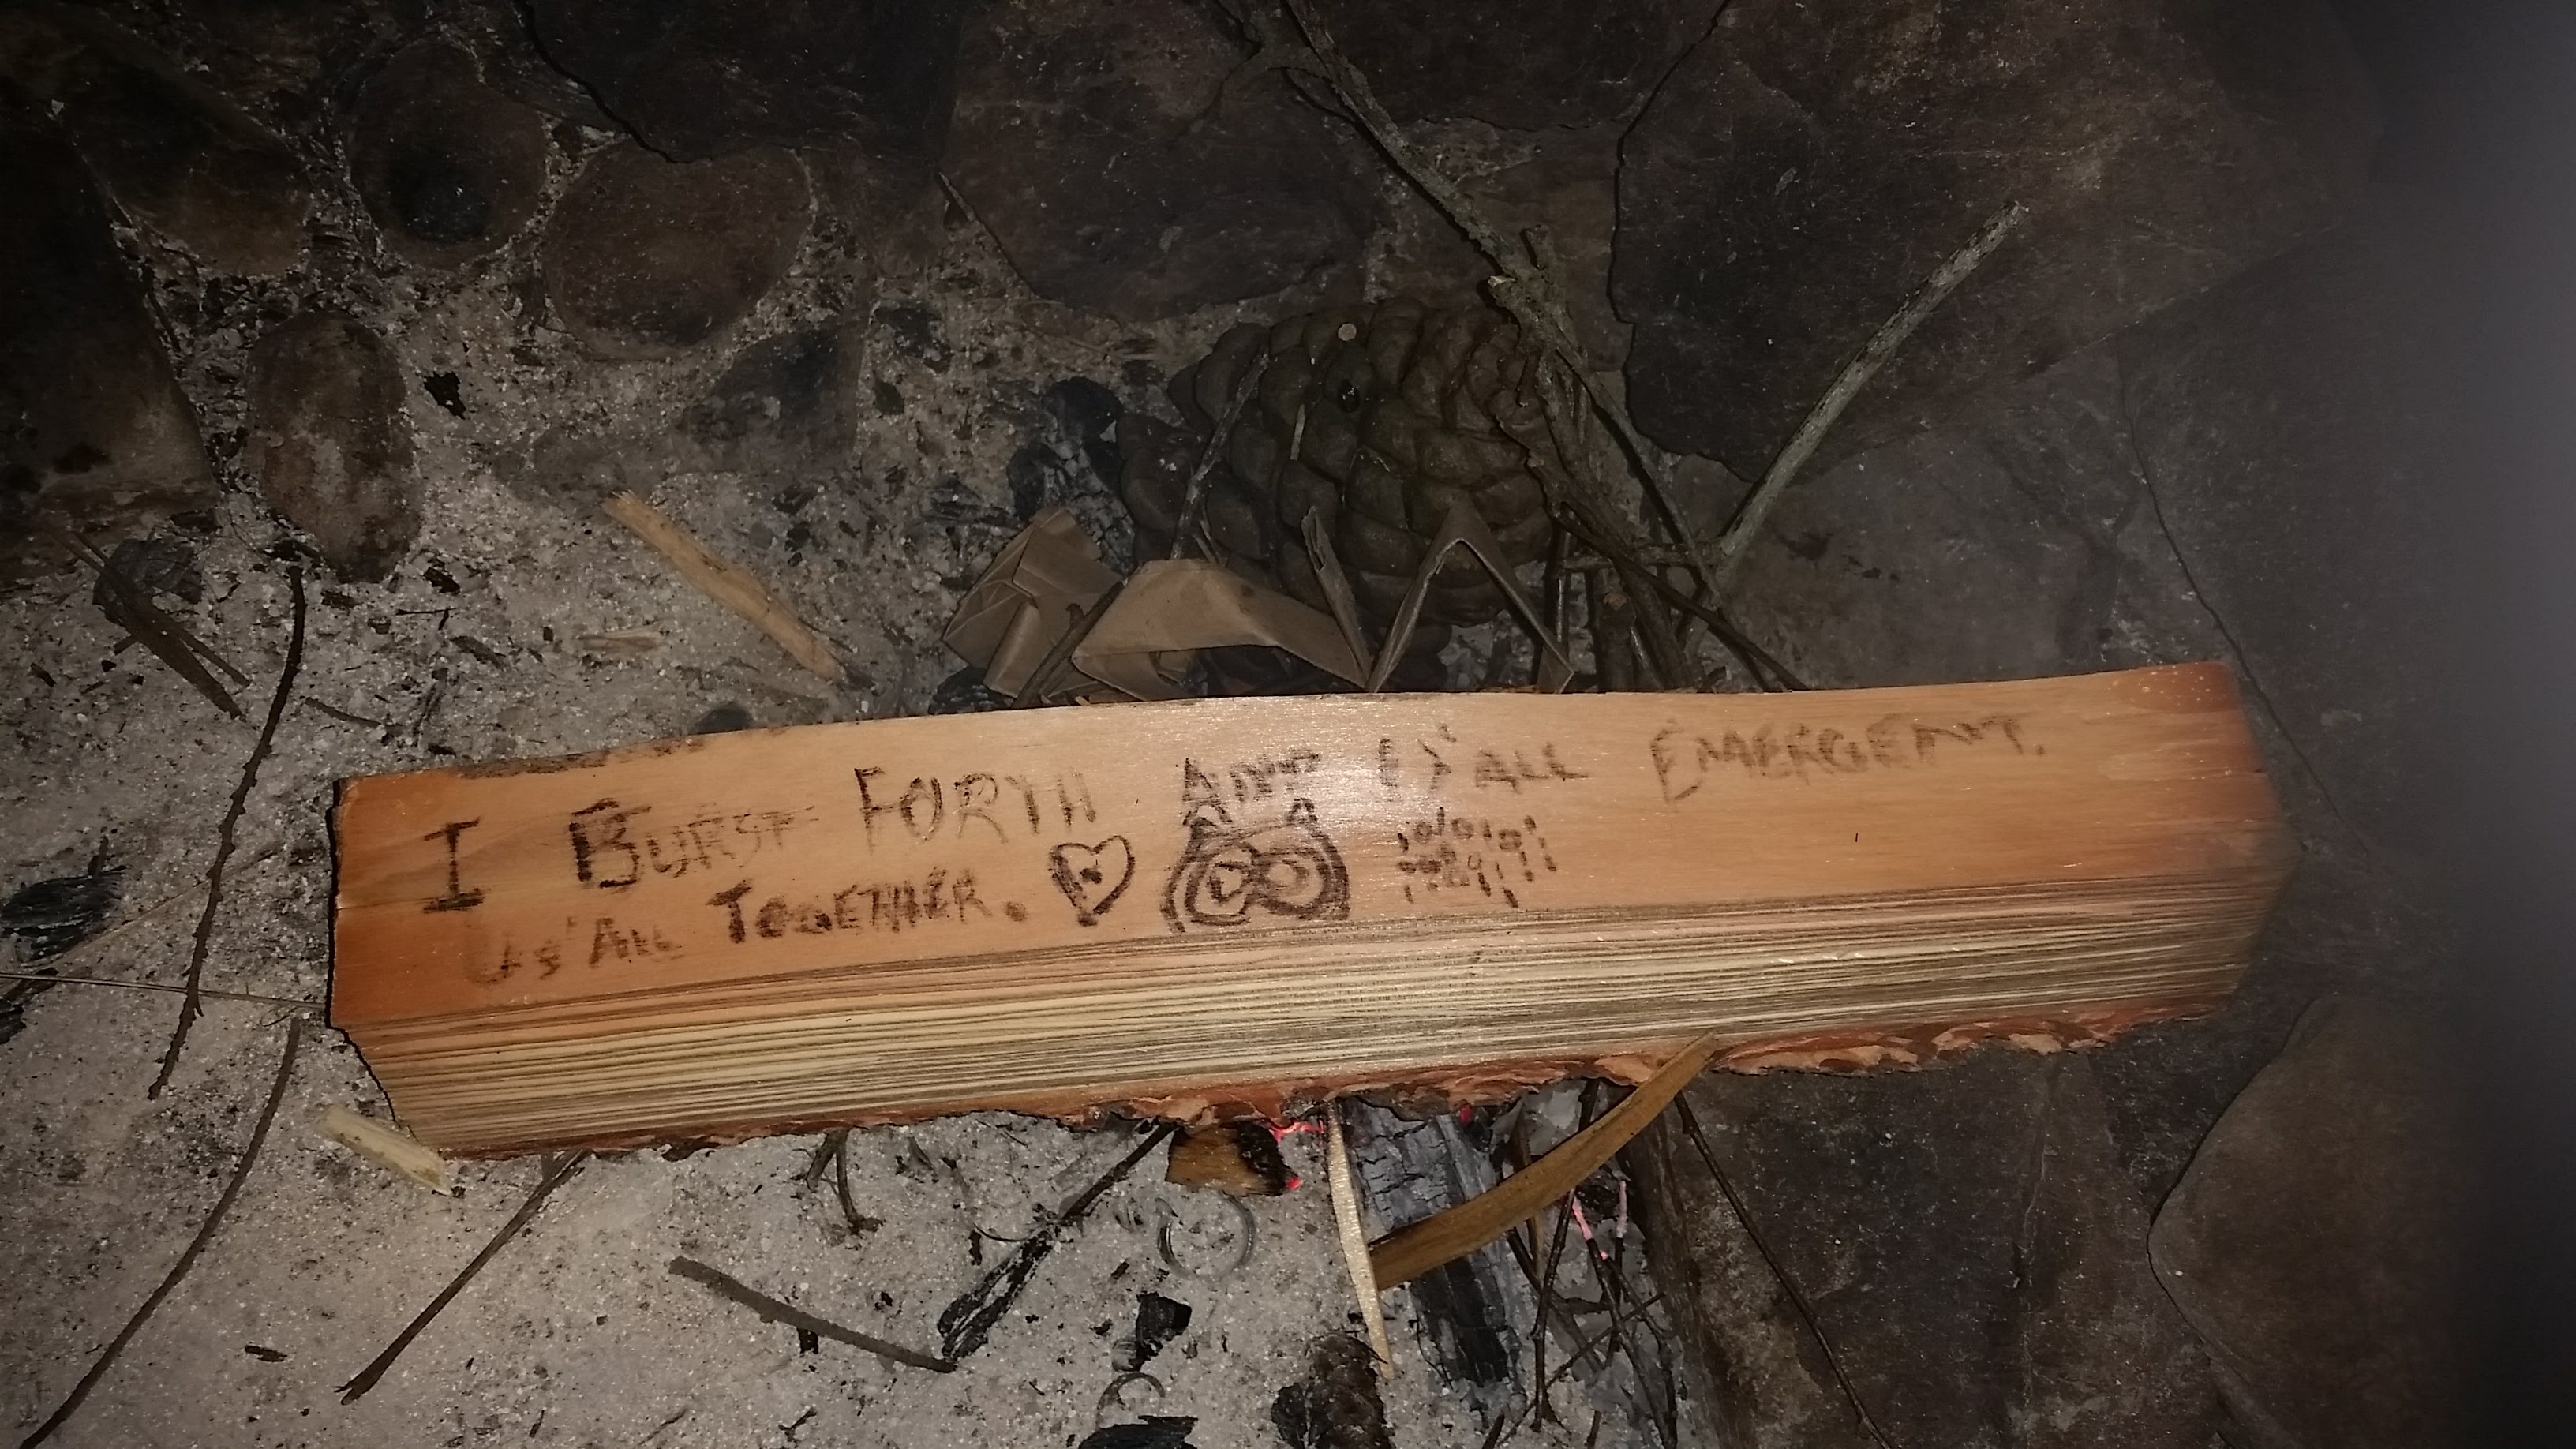 I BURST FORTH AND IS'ALL EMERGENT.
US'ALL TOGETHER.